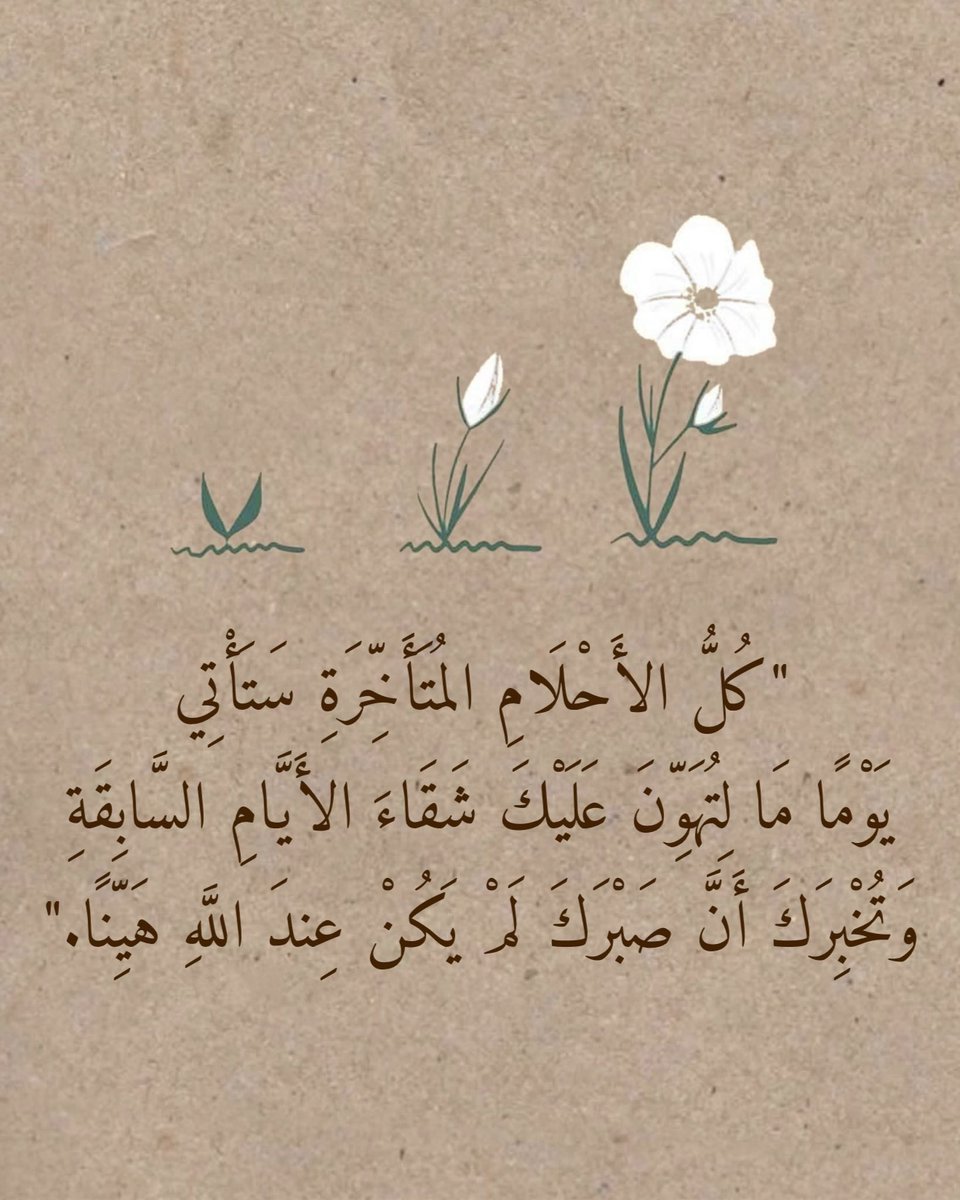 "كُلُّ الأَحْلَامِ المُتَأَخِّرَةِ سَتَأْتِي
يَوْمًا مَا لِتُهَوِّنَ عَلَيْكَ شَقَاءَ الأَيَّامِ السَّابِقَةِ
وَتُخْبِرَكَ أَنَّ صَبْرَكَ لَمْ يَكُنْ عِندَ اللَّهِ هَيِّنًا."